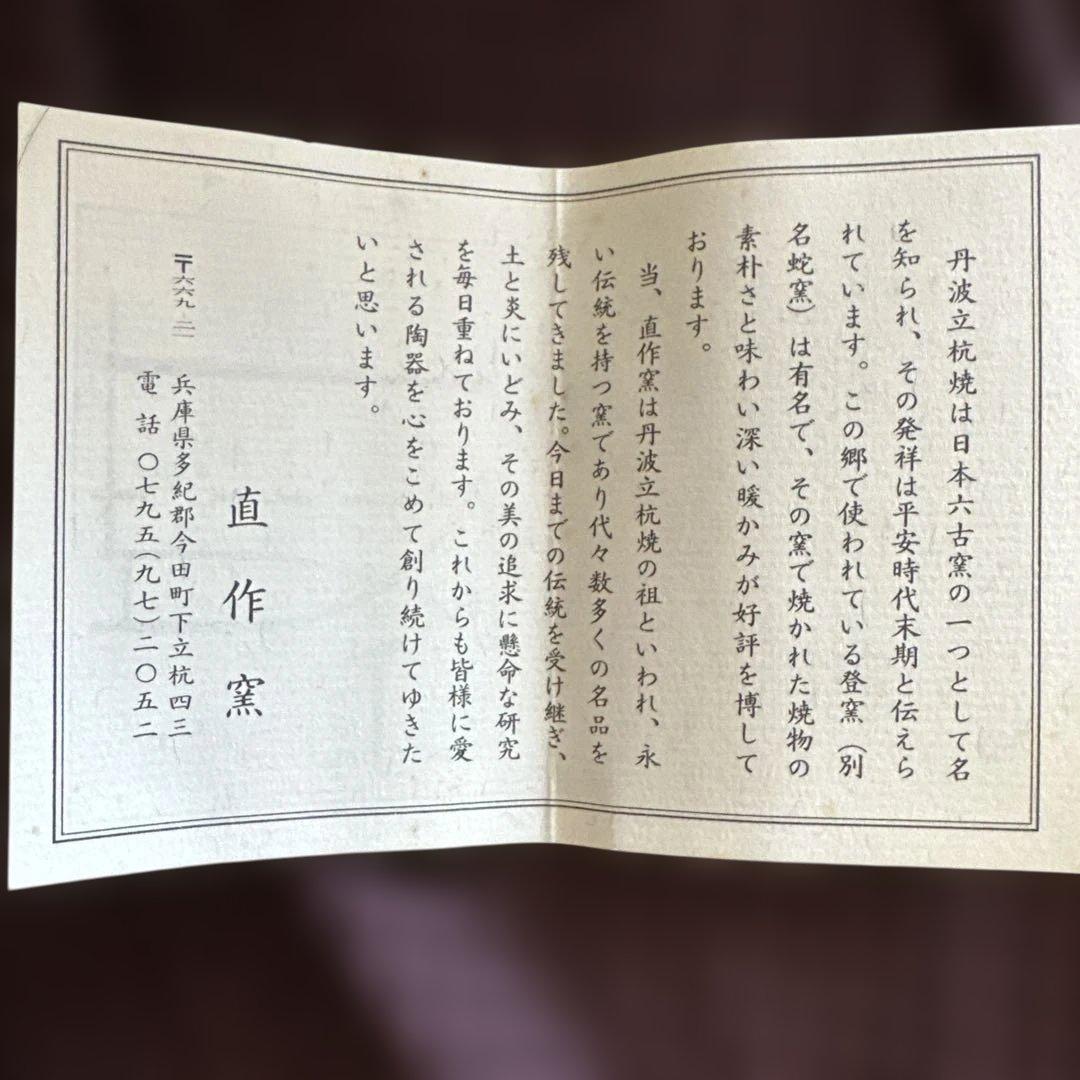 丹波立杭焼は日本六古窯の一つとして名
を知られ、その発祥は平安時代末期と伝えら
れています。この郷で使われている登窯（別
名蛇窯）は有名で、その窯で焼かれた焼物の
素朴さと味わい深い暖かみが好評を博して
おります。
当、直作窯は丹波立杭焼の祖といわれ、永
い伝統を持つ窯であり代々数多くの名品を
残してきました。今日までの伝統を受け継ぎ、
土と炎にいどみ、その美の追求に懸命な研究
を毎日重ねております。これからも皆様に愛
される陶器を心をこめて創り続けてゆきた
いと思います。
直作窯
〒六六九-二一
兵庫県多紀郡今田町下立杭四三
電話〇七九五（九七）二〇五二